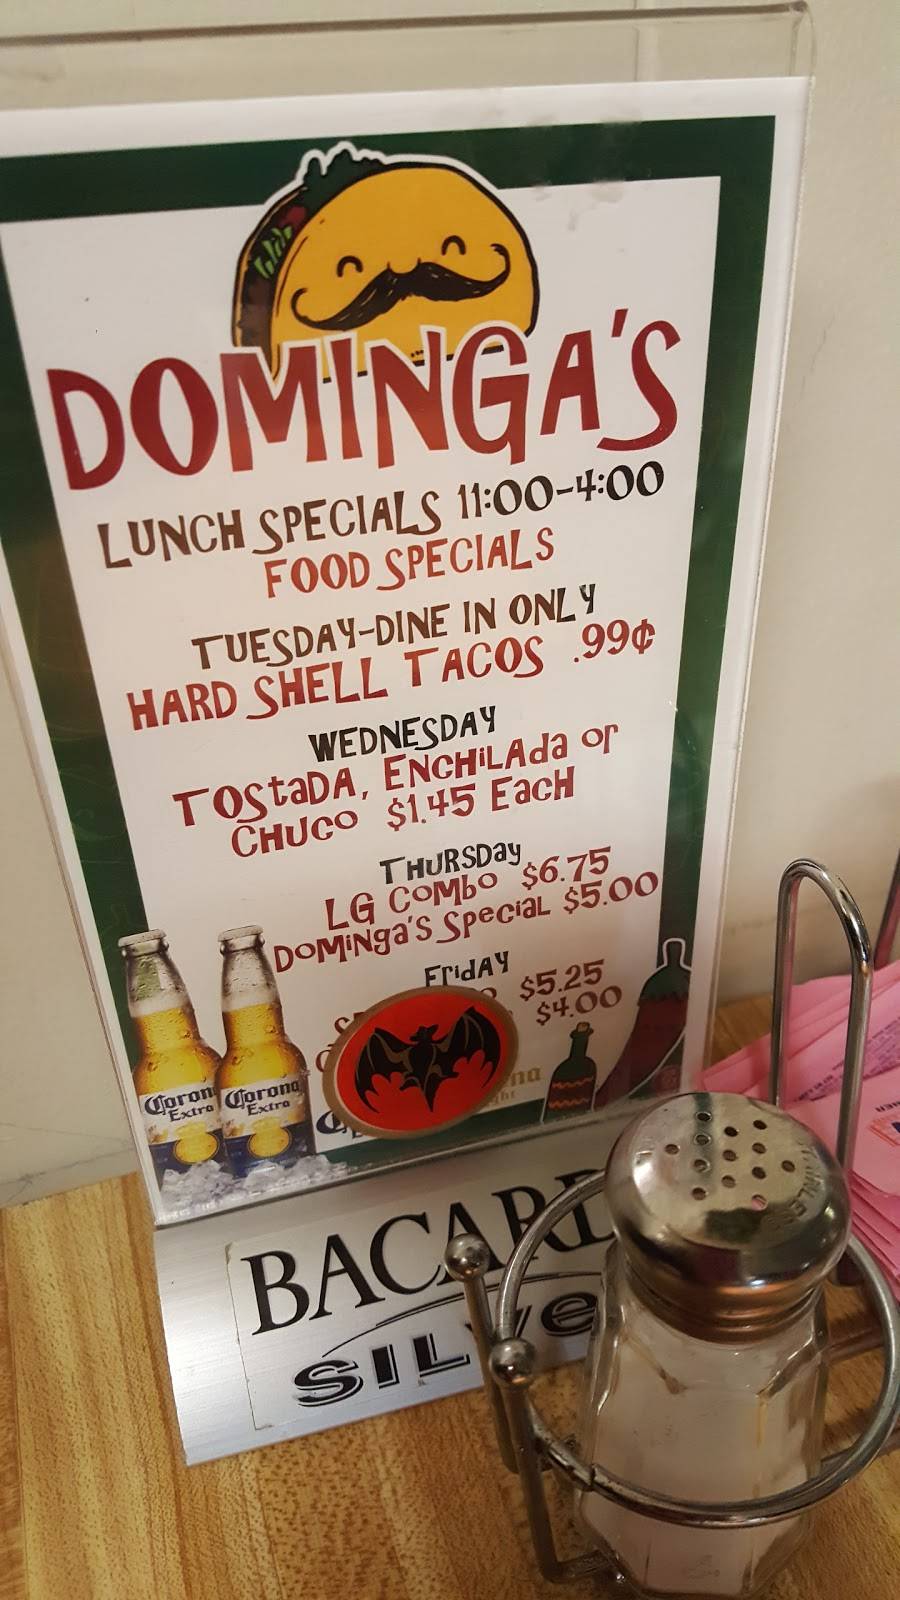 DOMINGA'S
LUNCH SPECIALS 11:00-4:00
FOOD SPECIALS
TUESDAY-DINE IN ONLY
HARD SHELL TACOS .99¢
WEDNESDAY
TOStaDA, ENCHiLAda or
CHUCO $1.45 EacH
THURSDay
LG CoMbo $6.75
DoMiNga's Special $5.00
FridAY
$5.25
$4.00
Corona
Extra
Corona
Extra
BACARD
SILve